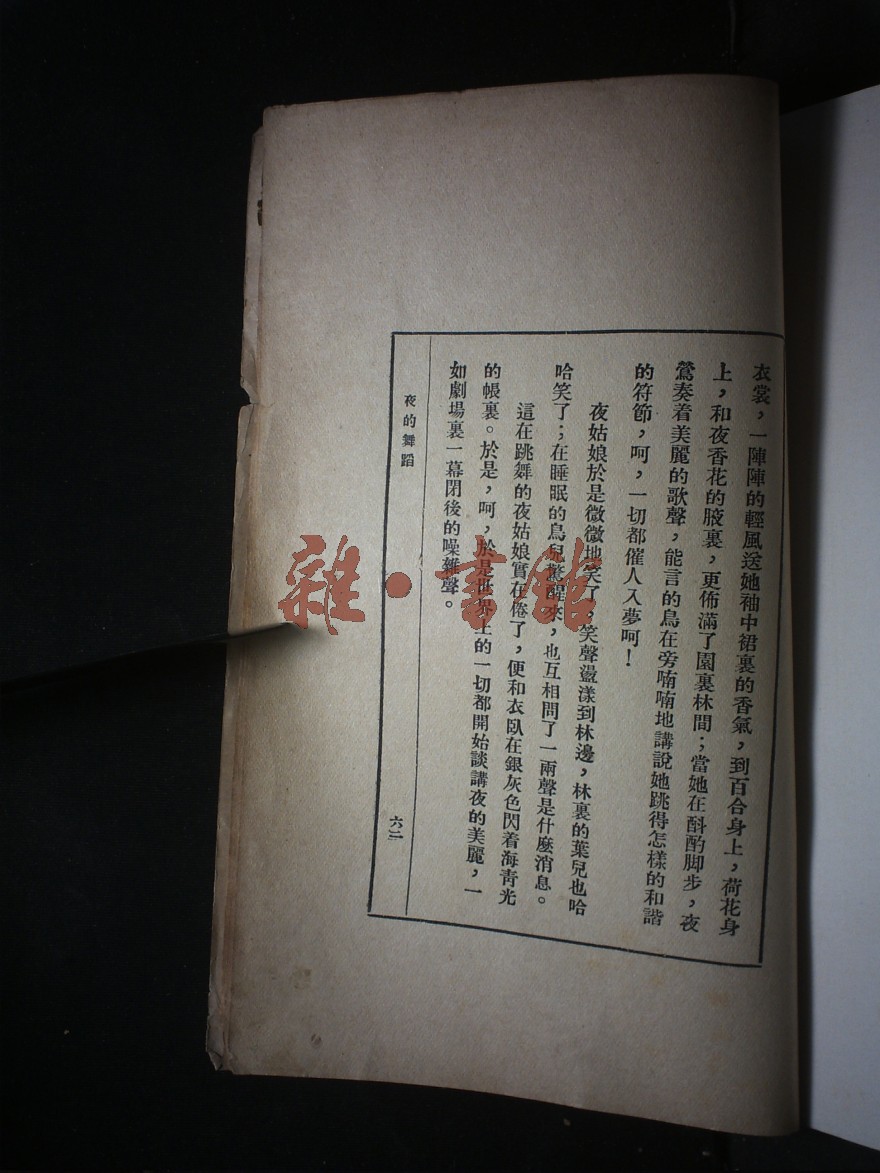 衣裳，一陣陣的輕風送她袖中裙裏的香氣，到百合身上，荷花身
上，和夜香花的腋裏，更佈滿了園裏林間；當她在斟酌脚步，夜
鶯奏着美麗的歌聲，能言的鳥在旁喃喃地講說她跳得怎樣的和諧
的符節，呵，一切都催人入夢呵！
夜姑娘於是微微地笑了，笑聲盪漾到林邊，林裏的葉兒也哈
哈笑了；在睡眠的鳥兒驚醒來，也互相問了一兩聲是什麼消息。
這在跳舞的夜姑娘實在倦了，便和衣臥在銀灰色閃着海青光
的帳裏。於是，呵，於是世界上的一切都開始談講夜的美麗，一
如劇場裏一幕閉後的噪雜聲。
夜的舞蹈
六二
雜·書館